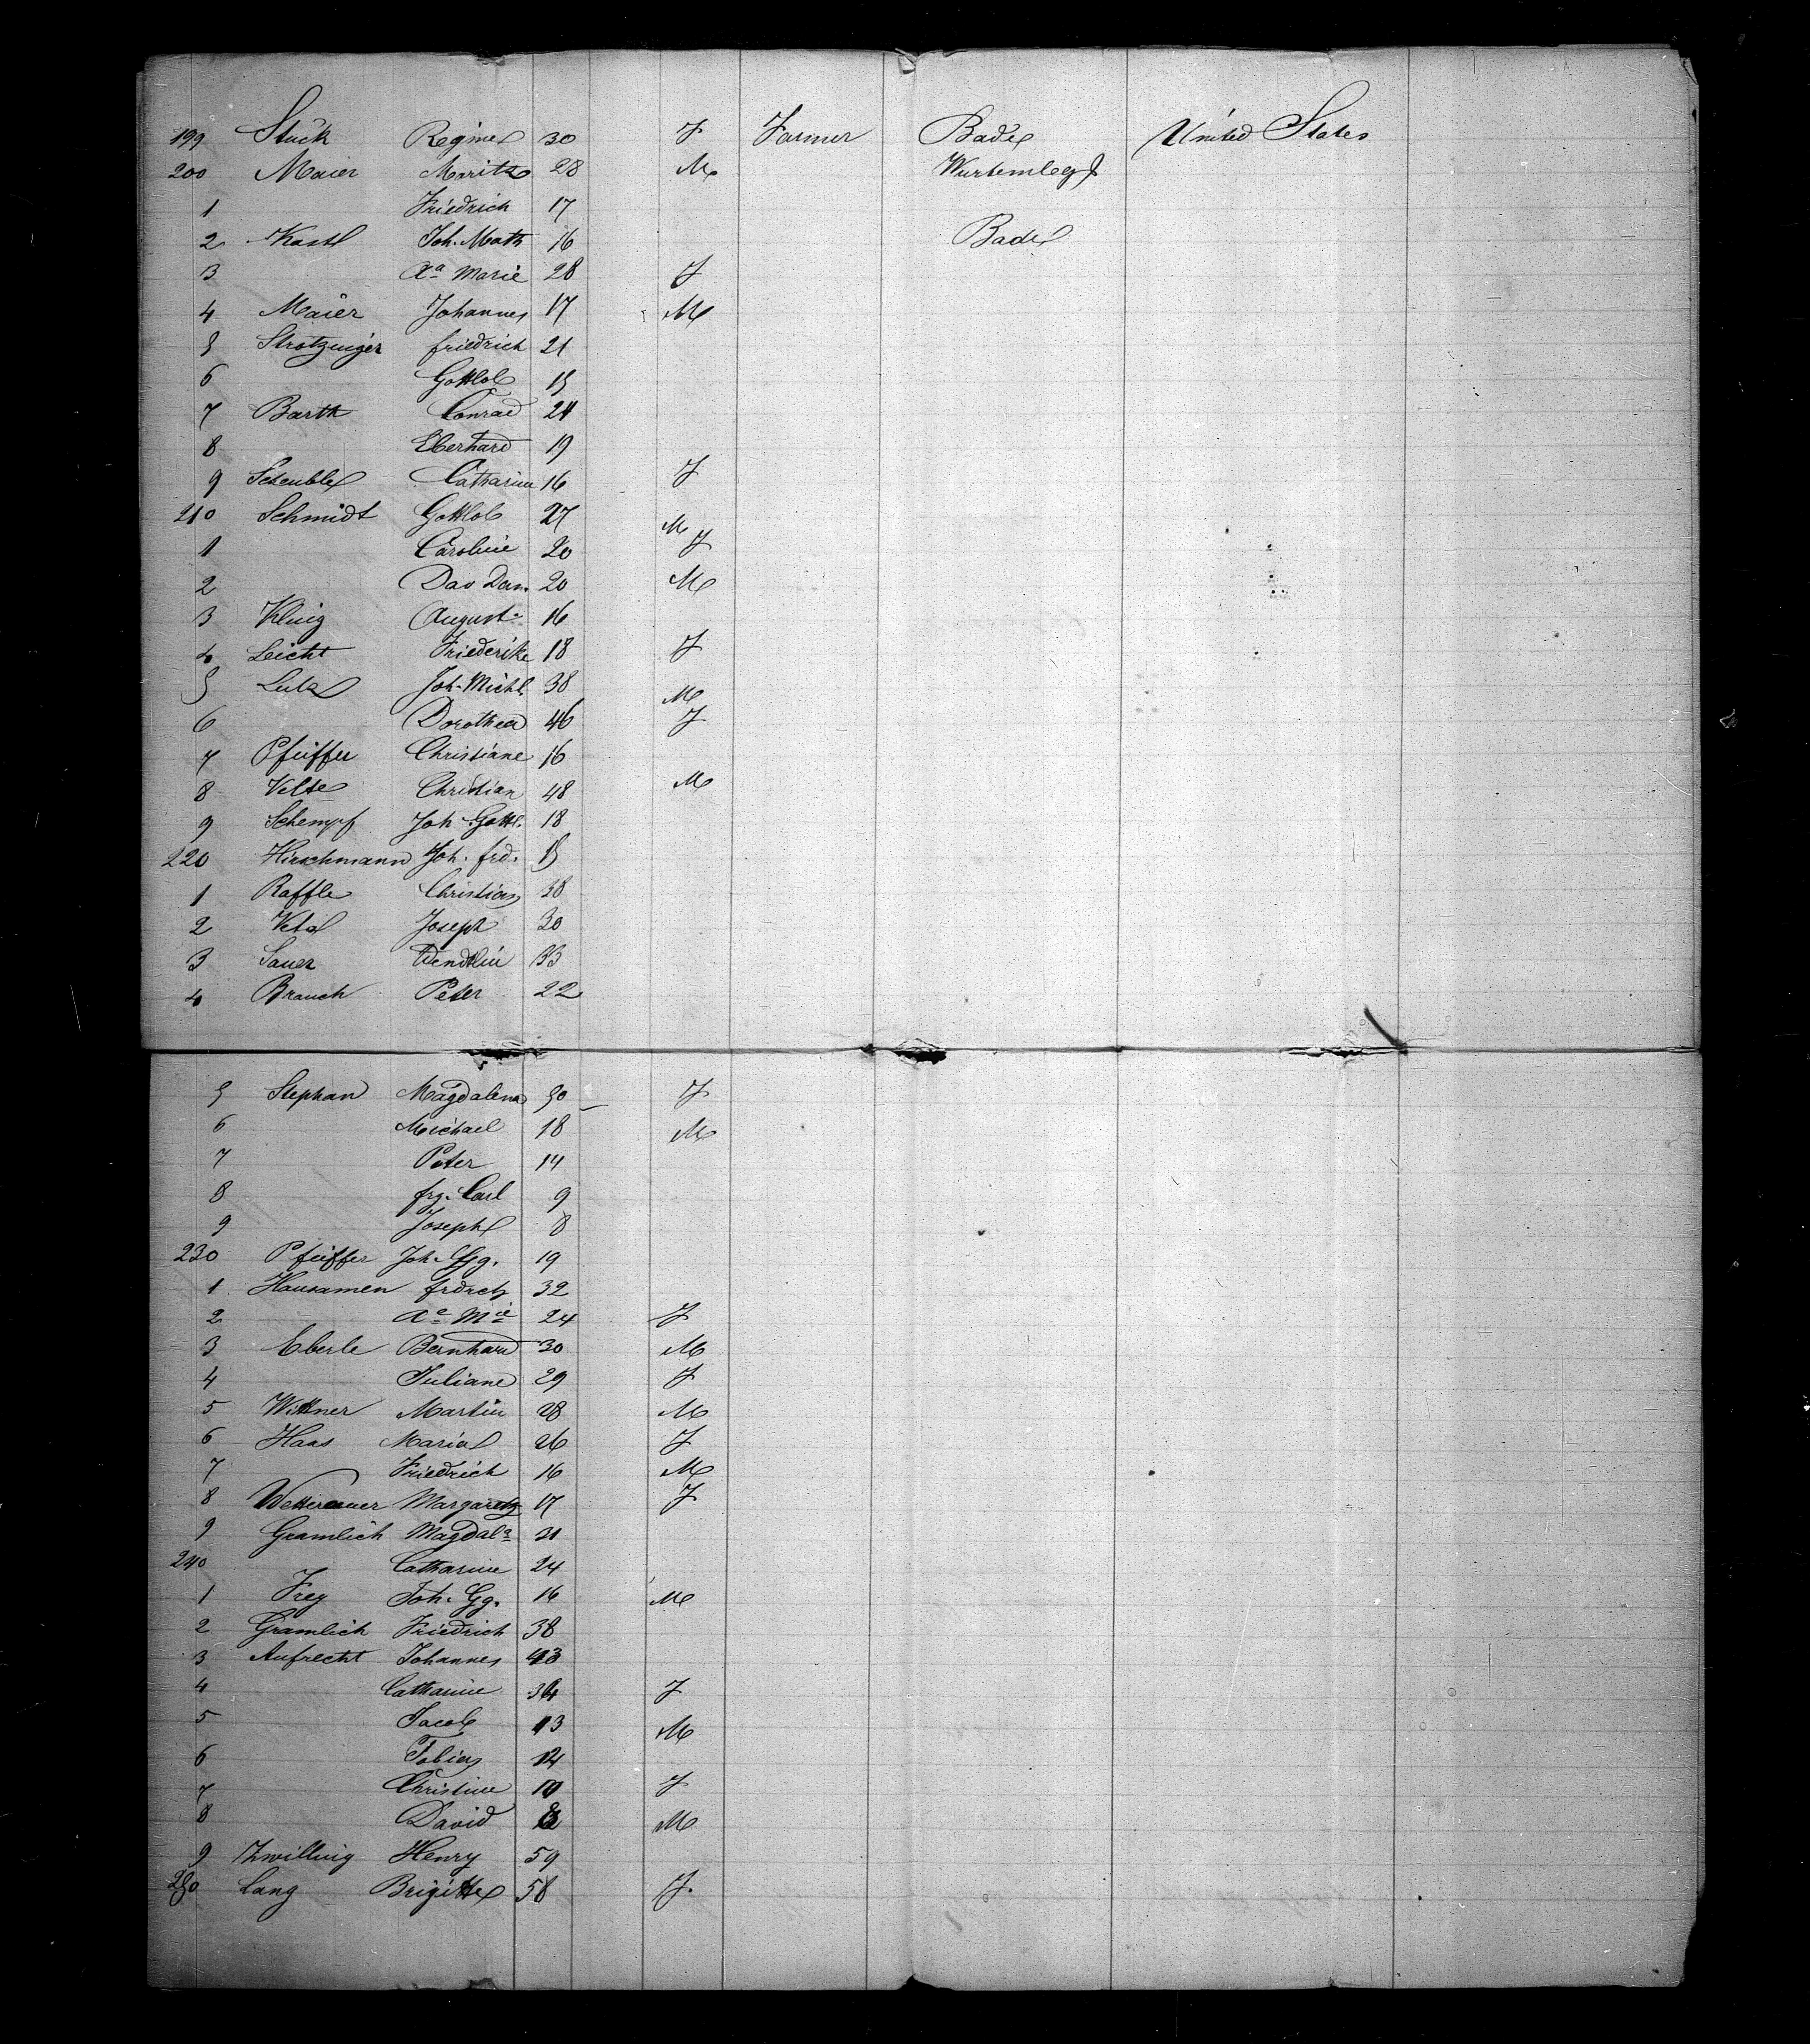 199 Stuck Regine 30 F Farmer Bade United States
200 Maier Moritz 28 M Wurtembeg
1 Friedrich 17
2 Kastl Joh. Math 16 Bade
3 Aa Marie 28 F
4 Maier Johannes 17 M
5 Strotzinger friedrich 21
6 Gottlob 15
7 Barth Conrad 24
8 Eberhard 19
9 Scheuble Catharine 16 F
210 Schmidt Gottlob 27 M
1 Caroline 20 F
2 Dav Dan. 20 M
3 Kluig August 16
4 Leicht Friederike 18 F
5 Lutz Joh. Michl. 38 M
6 Dorothea 46 F
7 Pfeiffer Christiane 16
8 Velte Christian 48 M
9 Schempf Joh. Gottl. 18
220 Hirschmann Joh. frd. 15
1 Raffle Christian 38
2 Joseph 30
3 Sauer Wendlin 33
4 Brauch Peter 22
5 Stephan Magdalena 50 F
6 Michael 18 M
7 Peter 14
8 frz. Carl 9
9 Joseph 8
230 Pfeiffer Joh. Gg. 19
1 Hausamen frdrch 32
2 Ae Mie 24 F
3 Eberle Bernhard 30 M
4 Juliane 29 F
5 Wittner Martin 28 M
6 Haas Maria 26 F
7 Friedrich 16 M
8 Wetterauer Margareth 17 F
9 Gramlich Magdala 31
240 Catharine 24
1 Frey Joh. Gg. 16 M
2 Gramlich Friedrich 38
3 Aufrecht Johannes 43
4 Catharine 34 F
5 Jacob 13 M
6 Tobias 12
7 Christine 10 F
8 David M
9 Zwilling Henry 59
250 Lang Brigitte 58 F.